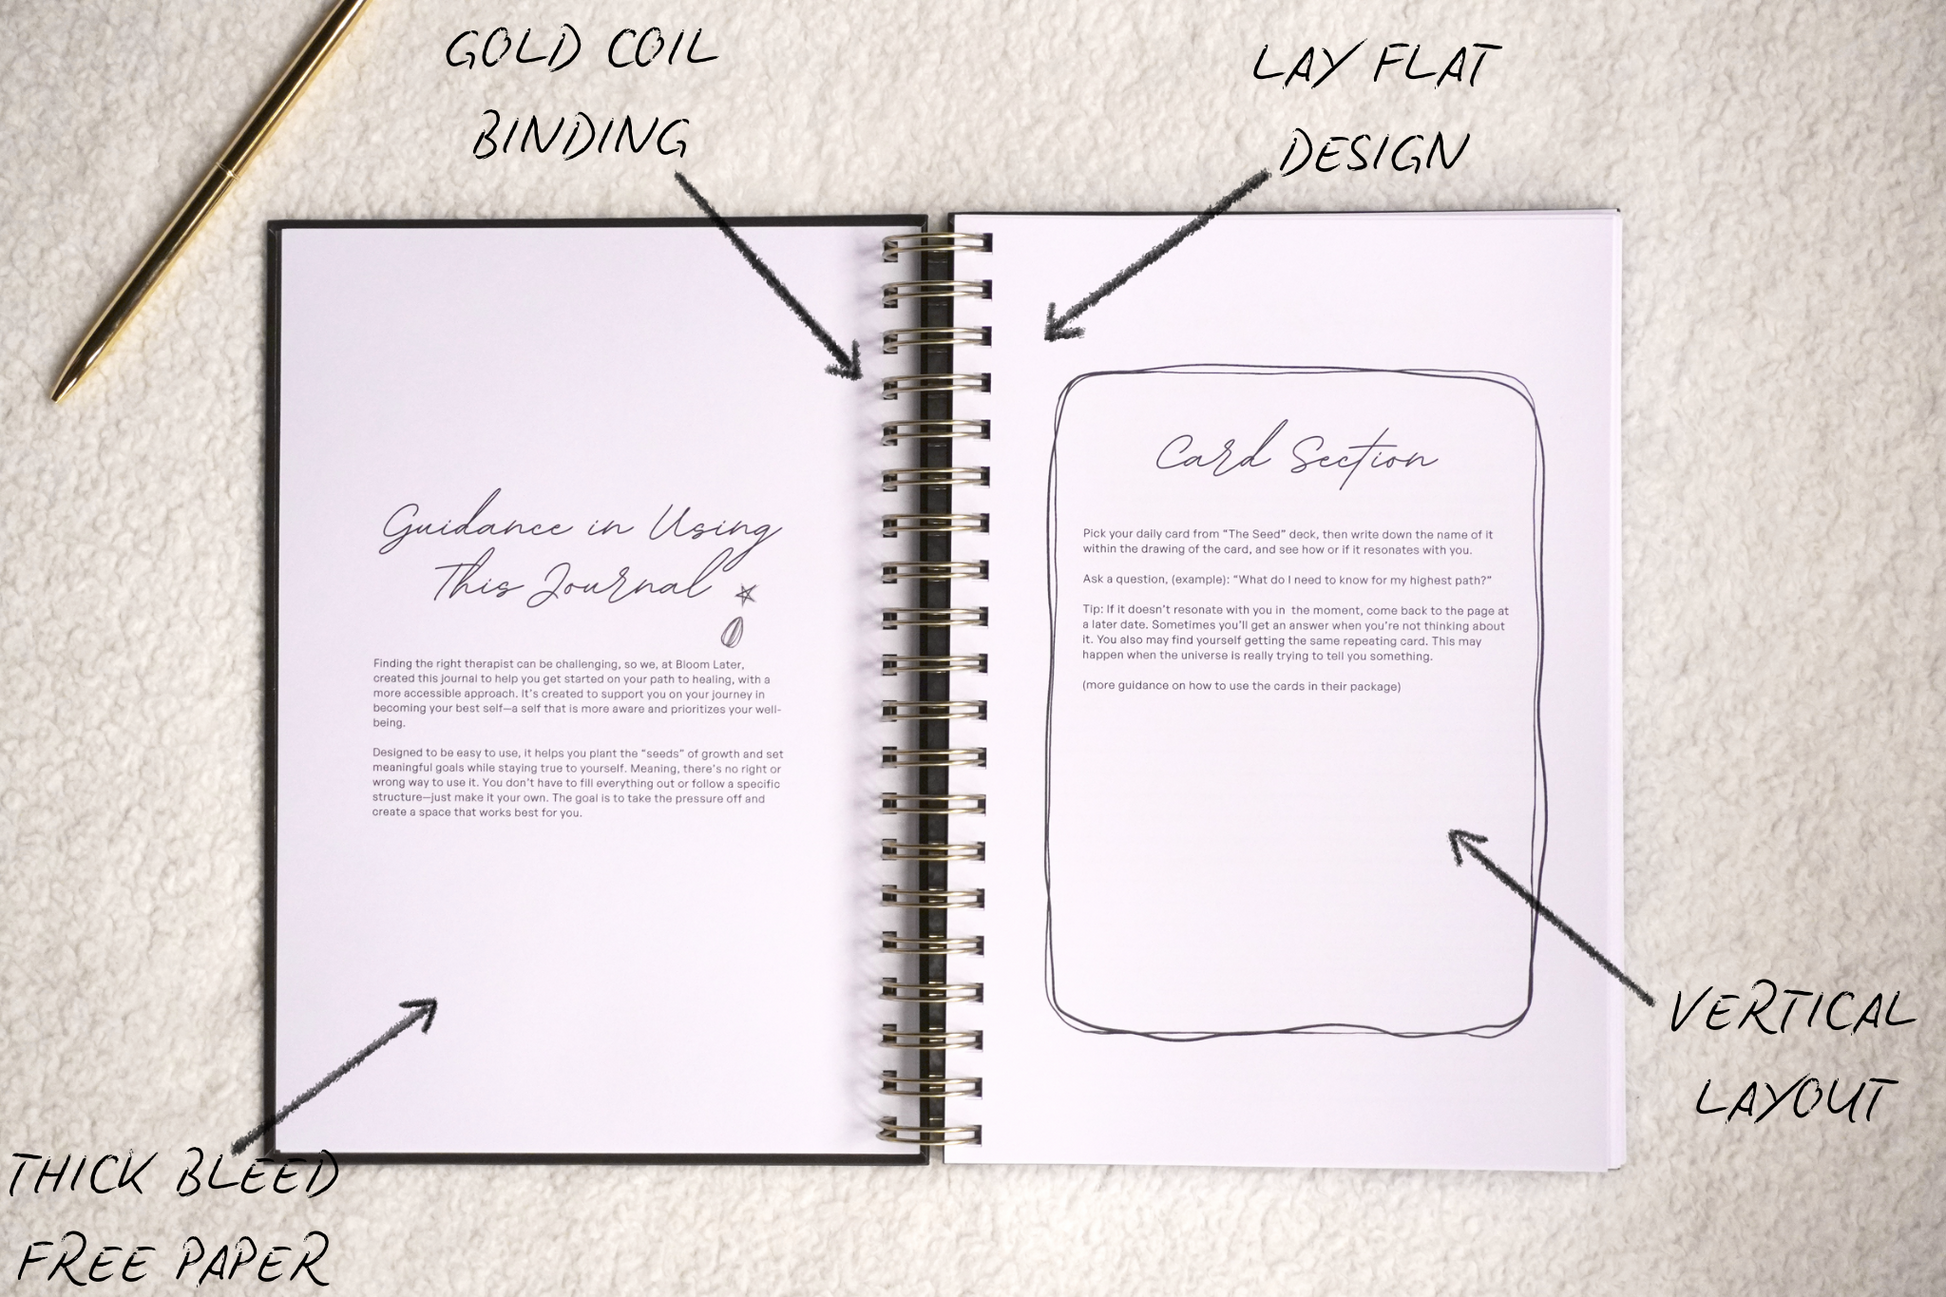 GOLD COIL
BINDING
LAY FLAT
DESIGN
Guidance in Using
This Journal
Finding the right therapist can be challenging, so we, at Bloom Later,
created this journal to help you get started on your path to healing, with a
more accessible approach. It's created to support you on your journey in
becoming your best self—a self that is more aware and prioritizes your well-
being.
Designed to be easy to use, it helps you plant the "seeds" of growth and set
meaningful goals while staying true to yourself. Meaning, there's no right or
wrong way to use it. You don't have to fill everything out or follow a specific
structure—just make it your own. The goal is to take the pressure off and
create a space that works best for you.
Card Section
Pick your daily card from "The Seed" deck, then write down the name of it
within the drawing of the card, and see how or if it resonates with you.
Ask a question, (example): "What do I need to know for my highest path?"
Tip: If it doesn't resonate with you in the moment, come back to the page at
a later date. Sometimes you'll get an answer when you're not thinking about
it. You also may find yourself getting the same repeating card. This may
happen when the universe is really trying to tell you something.
(more guidance on how to use the cards in their package)
VERTICAL
LAYOUT
THICK BLEED
FREE PAPER